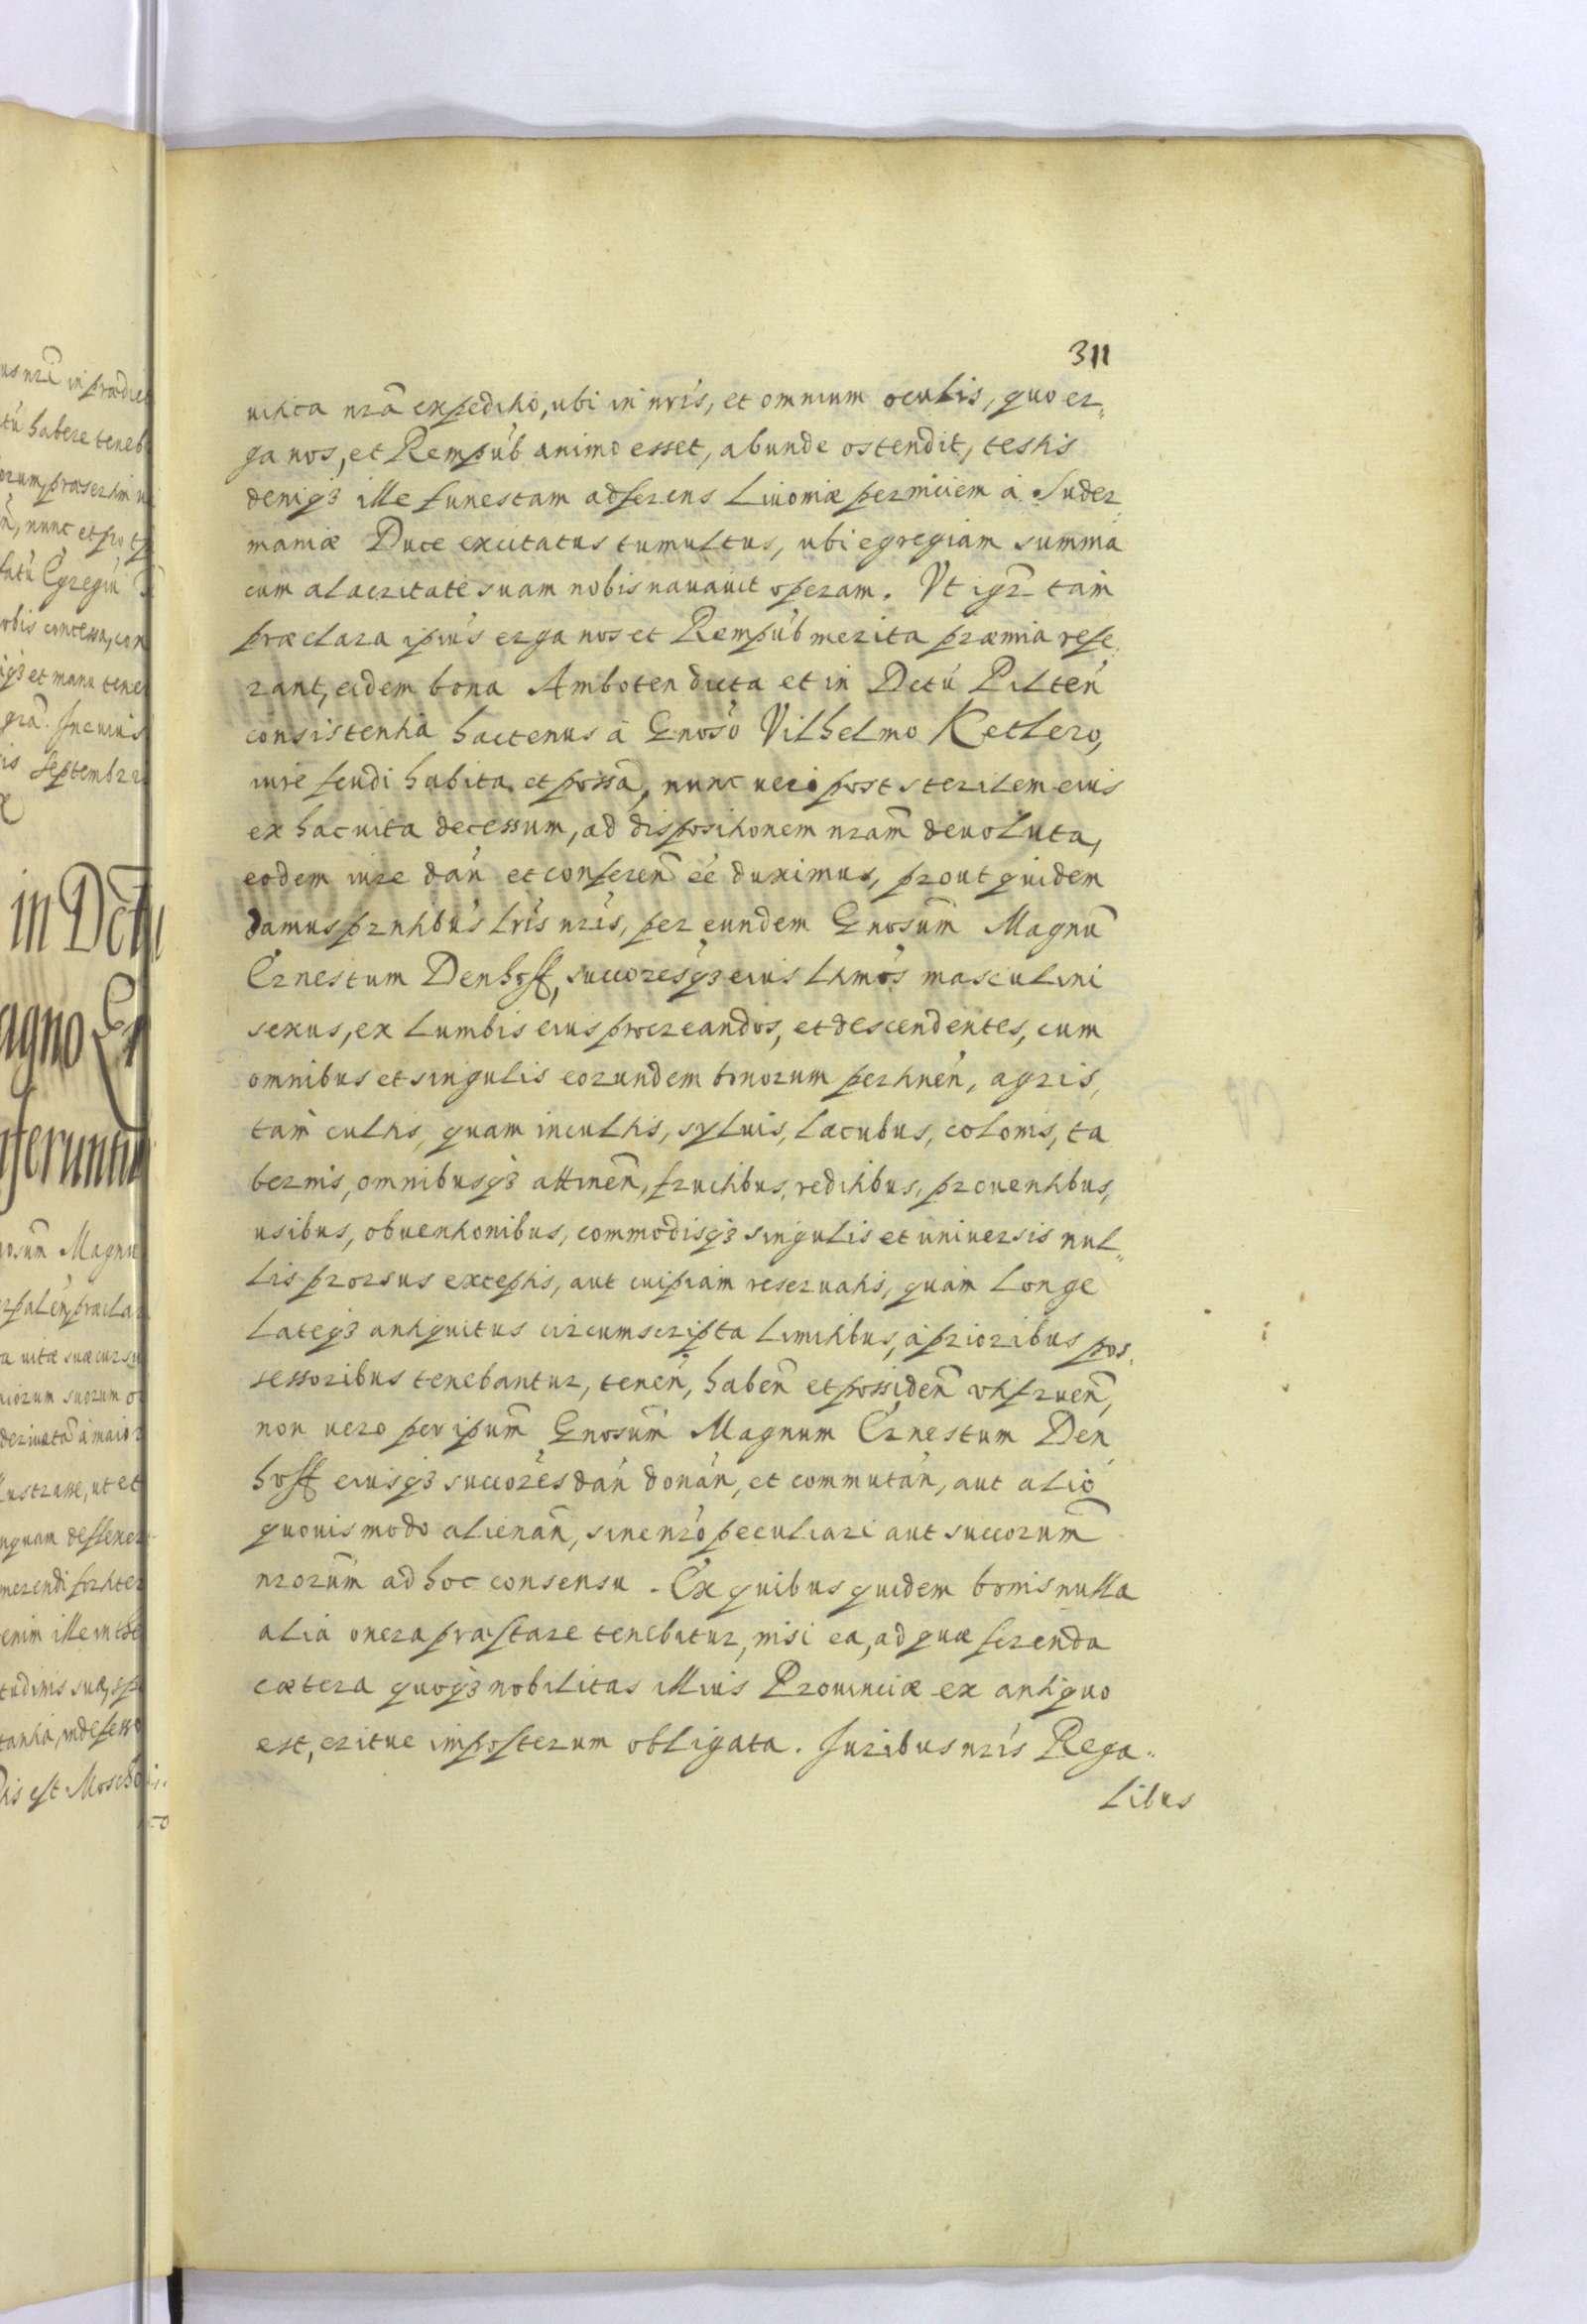 311
uitica nrā expeditio, ubi in nrís, et omnium oculis, quo er„
ga nos, et Rempúb animo esset, abunde ostendit, testis
deniq3 ille funestam adferens Liuoniæ perniciem à Suder„
maniæ Duce excitatus tumultus, ubi egregiam summa
cum alacritate suam nobis nauauit operam. Vt igr̄ tam
præclara ipiús erga nos et Rempúb merita præmia refe„
rant, eidem bona Amboten dicta et in Dctú Piltén
consistentia hactenus à Gnosó Vilhelmo Ketlero,
iure feudi habita et possā, nunc vero post sterilem eius
ex hac uita decessum, ad dispositionem nram̄ deuoluta,
eodem iure dań et conferen̄ eé duximus, prout quidem
damus prntibús lrís nrís, per eundem Gnosum̄ Magnū
Ernestum Denhoff, succoresq3 eius ltimós masculini
sexus, ex lumbis eius procreandos, et descendentes, cum
omnibus et singulis eorundem bonorum pertineń, agris,
tam cultis, quam incultis, syluis, lacubus, colonis, ta
bernis, omnibusq3 attinen̄, fructibus, reditibus, prouentibus,
usibus, obuentionibus, commodisq3 singulis et uniuersis nul„
lis prorsus exceptis, aut cuipiam reseruatis, quàm longe
lateq3 antiquitus circumscripta limitibus, à prioribus pos„
sessoribus tenebantur, tenen̄, haben̄ et possiden̄ utifruen̄,
non uero per ipum̄ Gnosum̄ Magnum Ernestum Den
hoff eiusq3 succorés dań donań, et commutań, aut alio
quouis modo alienan̄, sine nró peculiari aut succorum̄
nrorum̄ ad hoc consensu. Ex quibus quidem bonis nulla
alia onera præstare tenebitur, nisi ea, ad quæ ferenda
cætera quoq3 nobilitas illius Prouinciæ ex antiquo
est, eritue imposterum obligata. Juribus nrís Rega„
libus